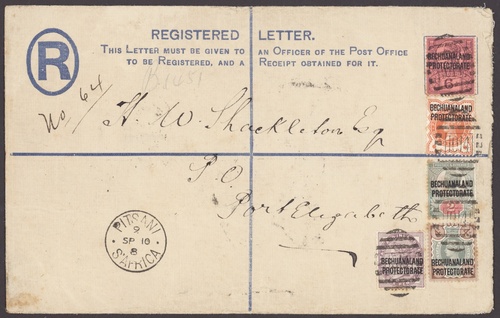 REGISTERED LETTER.
THIS LETTER MUST BE GIVEN TO AN OFFICER OF THE POST OFFICE
TO BE REGISTERED, AND A RECEIPT OBTAINED FOR IT.
R
No. 64
BECHUANALAND
PROTECTORATE
H. W. Shackleton Esq
BECHUANALAND
PROTECTORATE
P.O.
BECHUANALAND
PROTECTORATE
Port Elizabeth
PITSANI
9
SP 10
8
S. AFRICA
BECHUANALAND
PROTECTORATE
BECHUANALAND
PROTECTORATE